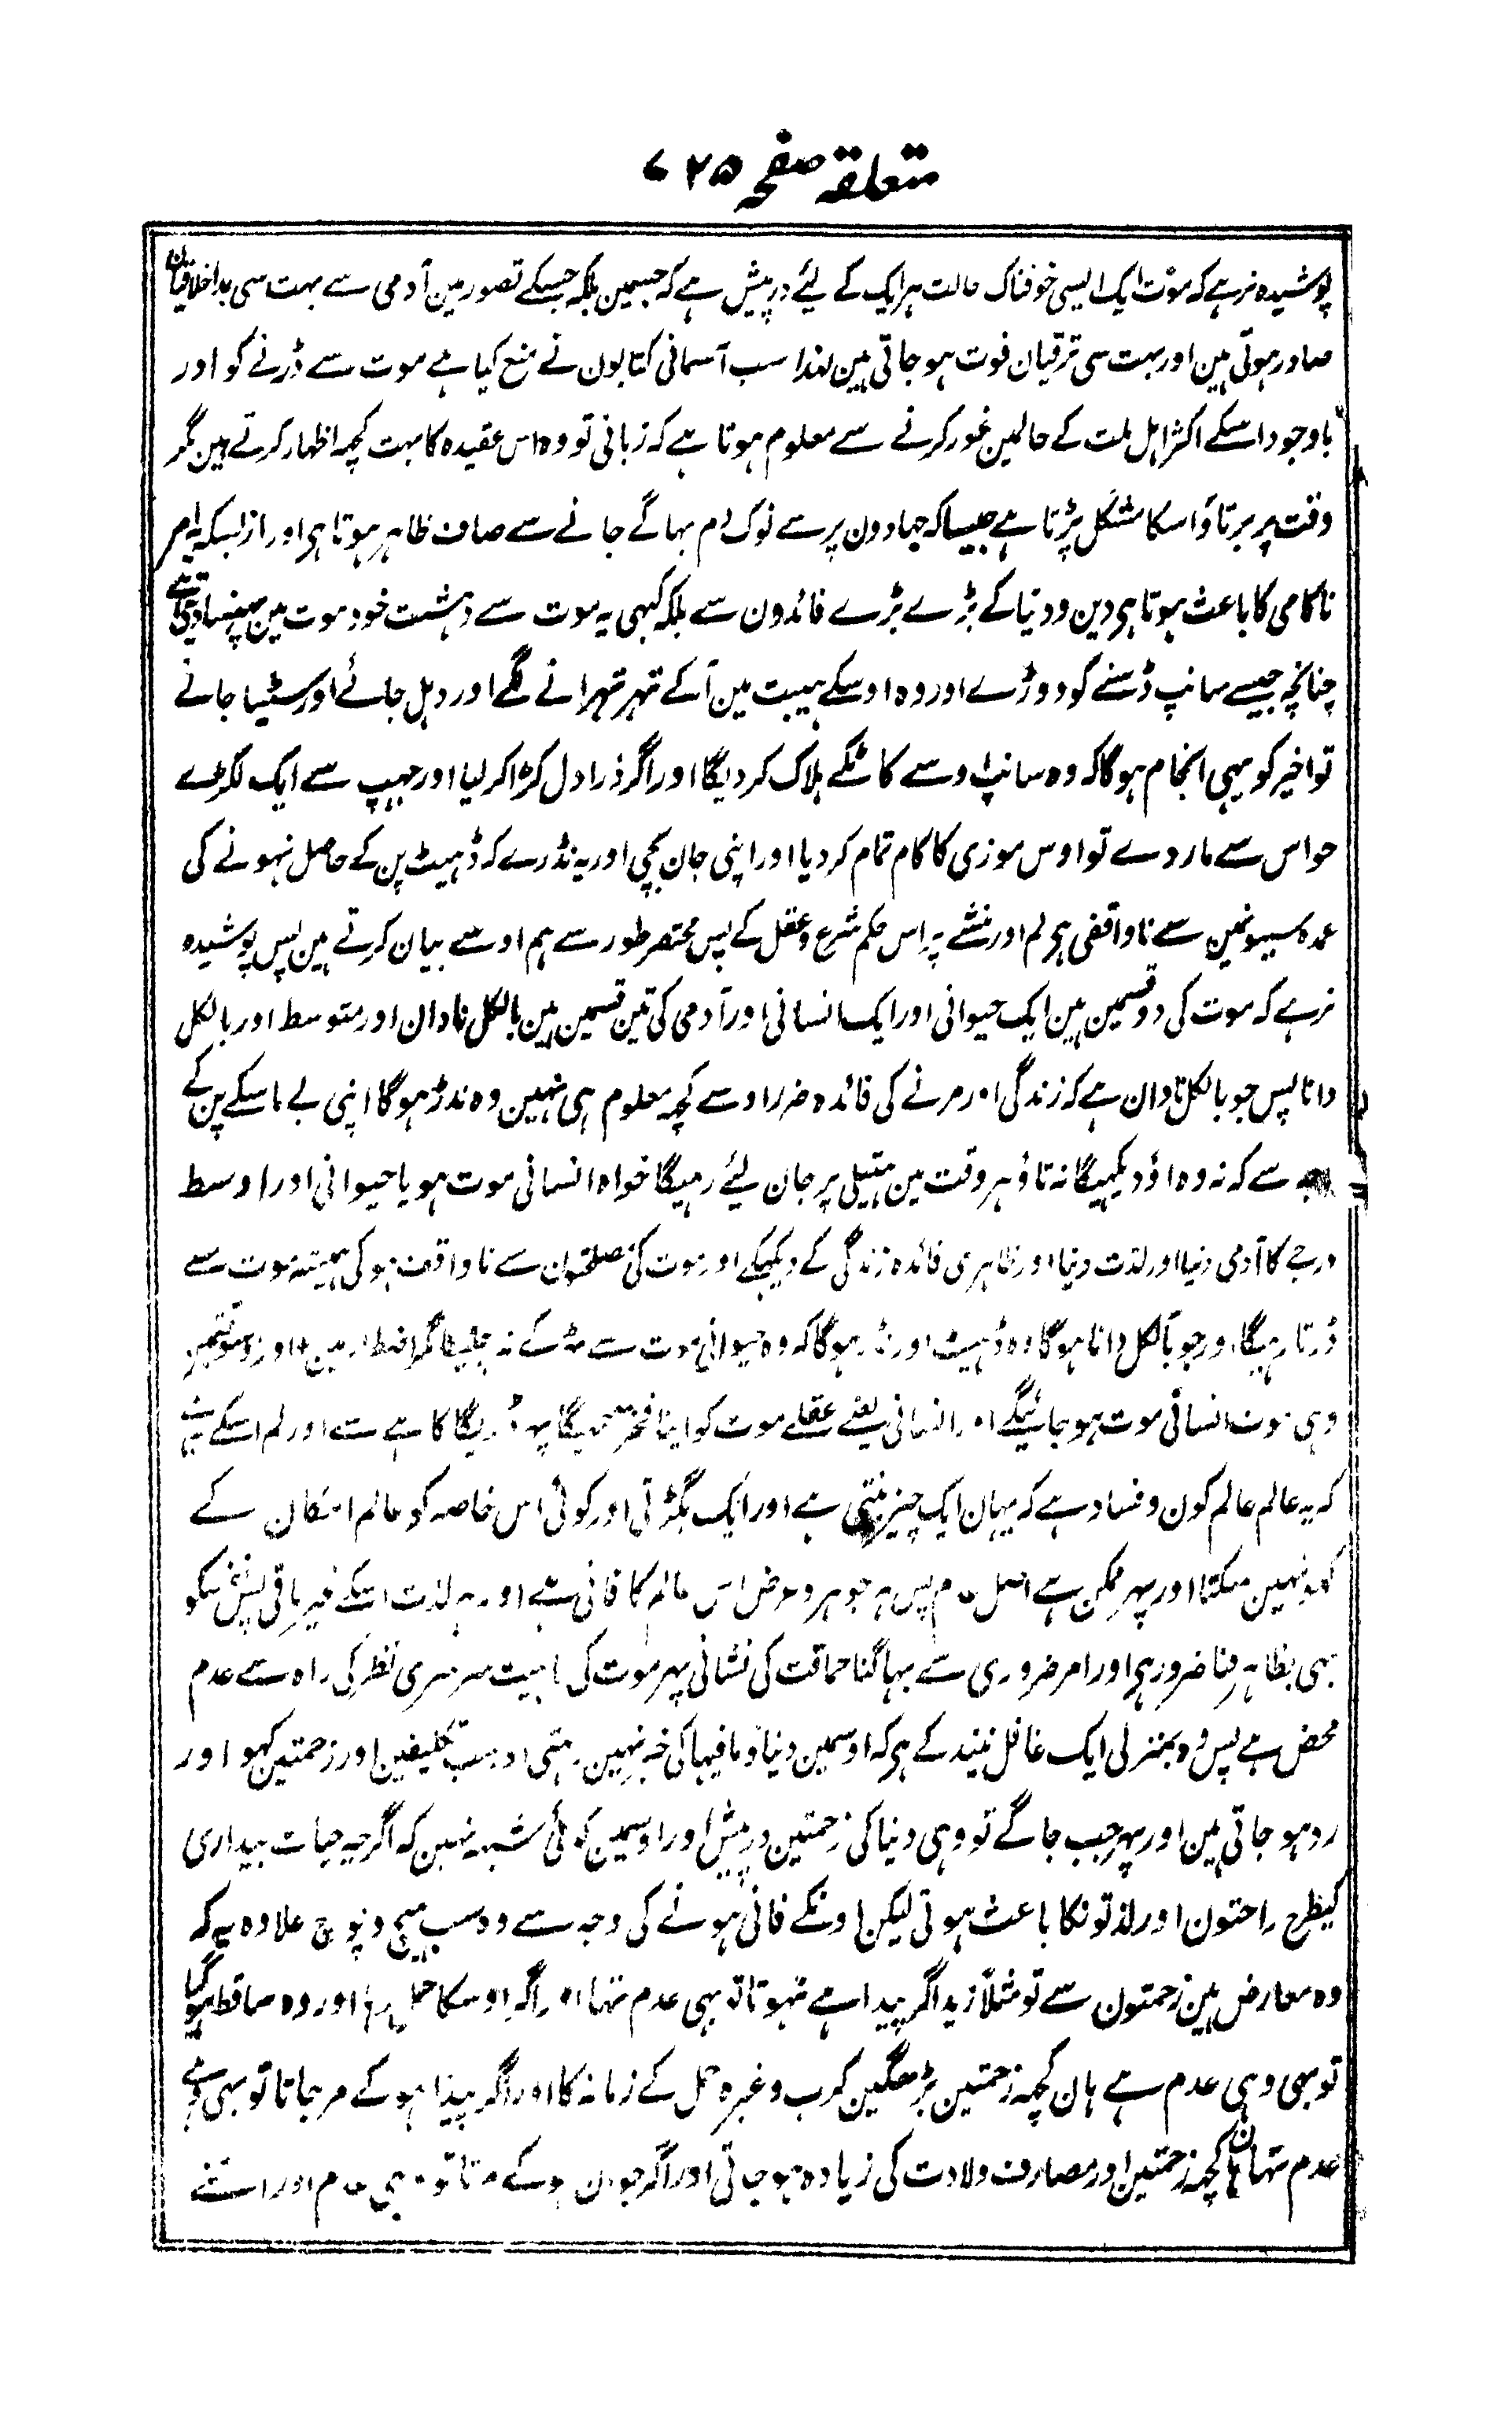 متعلقہ صفحہ ۲۵ ے
پوشیدہ نرہے کہ موت ایک ایسی خوفناک حالت ہر ایک کے لئے درپیش ہے کہ جسمین بلکہ جسکے تصور مین آدمی سے بہت سی بداخلاقیان
صادر ہوتی ہین اور بہت سی ترقیان فوت ہوجاتی ہین لہذا سب آسمانی کتابون نے منع کیا ہے موت سے ڈرنے کو اور
باوجود اسکے اکثر اہل ملت کے حالمین غور کرنے سے معلوم ہوتا ہے کہ زبانی تو وہ اس عقیدہ کا بہت کچہ اظہار کرتے ہین مگر
وقت پر برتاؤ اسکا مشکل پڑتا ہے جیسا کہ جہادون پر سے نوک دم بہاگے جانے سے صاف ظاہر ہوتا ہی اور ازبسکہ یہ امر
ناکامی کا باعث ہوتا ہی دین و دنیا کے بڑے بڑے فائدون سے بلکہ کبہی یہ موت سے دہشت خود موت مین پہنسا دیتی ہے
چنانچہ جیسے سانپ ڈسنے کو دوڑے اور وہ اوسکے ہیبت مین آکے تہر تہرانے لگے اور دہل جائے اور سٹپا جانے
تو اخیر کو یہی انجام ہوگا کہ وہ سانپ اوسے کاٹکے ہلاک کردیگا اور اگر ذرا دل کڑا کر لیا اور جہپ سے ایک لکڑے
حواس سے مار دے تو اوس موزی کا کام تمام کردیا اور اپنی جان بچی اور یہ نڈرے کہ ڈہیٹ پن کے حاصل نہونے کی
عمدہ سببونمین سے ناواقفی ہی لم اور منشے پر اس حکم شرع و عقل کے پس مختصر طور سے ہم اوسے بیان کرتے ہین پس پوشیدہ
نرہے کہ موت کی دو قسمین ہین ایک حیوانی اور ایک انسانی اور آدمی کی تین قسمین ہین بالکل نادان اور متوسط اور بالکل
دانا پس جو بالکل نادان ہے کہ زندگی اور مرنے کی فائدہ ضرر اوسے کچہ معلوم ہی نہین وہ نڈر ہوگا اپنی بے ماسکے پن کے
سے کہ نہ وہ اؤ دیکہیگا نہ تاؤ ہر وقت مین ہتیلی پر جان لئے رہیگا خواہ انسانی موت ہو یا حیوانی اور اوسط
درجے کا آدمی دنیا اور لذت دنیا اور ظاہری فائدہ زندگی کے دیکہیکے اور موت کی مصلحتون سے ناواقف ہوکی ہمیشہ موت سے
ڈرتا رہیگا اور جو بالکل دانا ہوگا وہ ڈہیٹ اور نڈر ہوگا کہ وہ حیوانی موت سے ہٹ کے نہ چلیگا مگر اضطرار مین اور
وہی موت انسانی موت ہو جائیگے اور انسانی یعنے عقلے موت کو اپنا فخر سمجہیگا پہر ڈریگا کاہے سے اور لم اسکے یہ ہے
کہ یہ عالم عالم کون و فساد ہے کہ یہان ایک چیز بنتی ہے اور ایک بگڑتی اور کوئی اس خاصہ کو عالم امکان کے
نہین سکتا اور پہر ممکن ہے اصل عدم پس ہر جوہر و عرض اس عالم کا فانی ہے اور ہر لذت اسکے غیر باقی
بہی بظاہر فنا ضرور ہی اور امر ضروری سے بہاگنا حماقت کی نشانی پہر موت کی ماہیت سرسری نظر کی راہ سے عدم
محض ہے پس وہ بمنزلی ایک غافل نیند کے ہی کہ اوسمین دنیا و مافیہا کی خبر نہین رہتی اور سب تکلیفین اور زحمتین کہو اور
رد ہو جاتی ہین اور پہر جب جاگے تو وہی دنیا کی زحمتین درپیش اور اوسمین کوئی شبہہ نہین کہ اگرچہ حیات بیداری
کیطرح راحتون اور لذتونکا باعث ہوتی لیکن اونکے فانی ہونے کی وجہ سے وہ سب ہیچ و پوچ علاوہ یہ کہ
وہ معارض ہین زحمتون سے تو مثلاً زید اگر پیدا ہے نہوتا تو بہی عدم تہا اور اگر اوسکا حمل رہا اور وہ ساقط ہوگیا
تو بہی وہی عدم ہے ہان کچہ زحمتین بڑھگین کرب وغیرہ حمل کے زمانہ کا اور اگر پیدا ہو کے مرجاتا تو بہی وہی
عدم تہا ہان کچہ زحمتین اور مصارف ولادت کی زیادہ ہوجاتی اور اگر جوان ہوکے مرتا تو بہی عدم اور اتنے